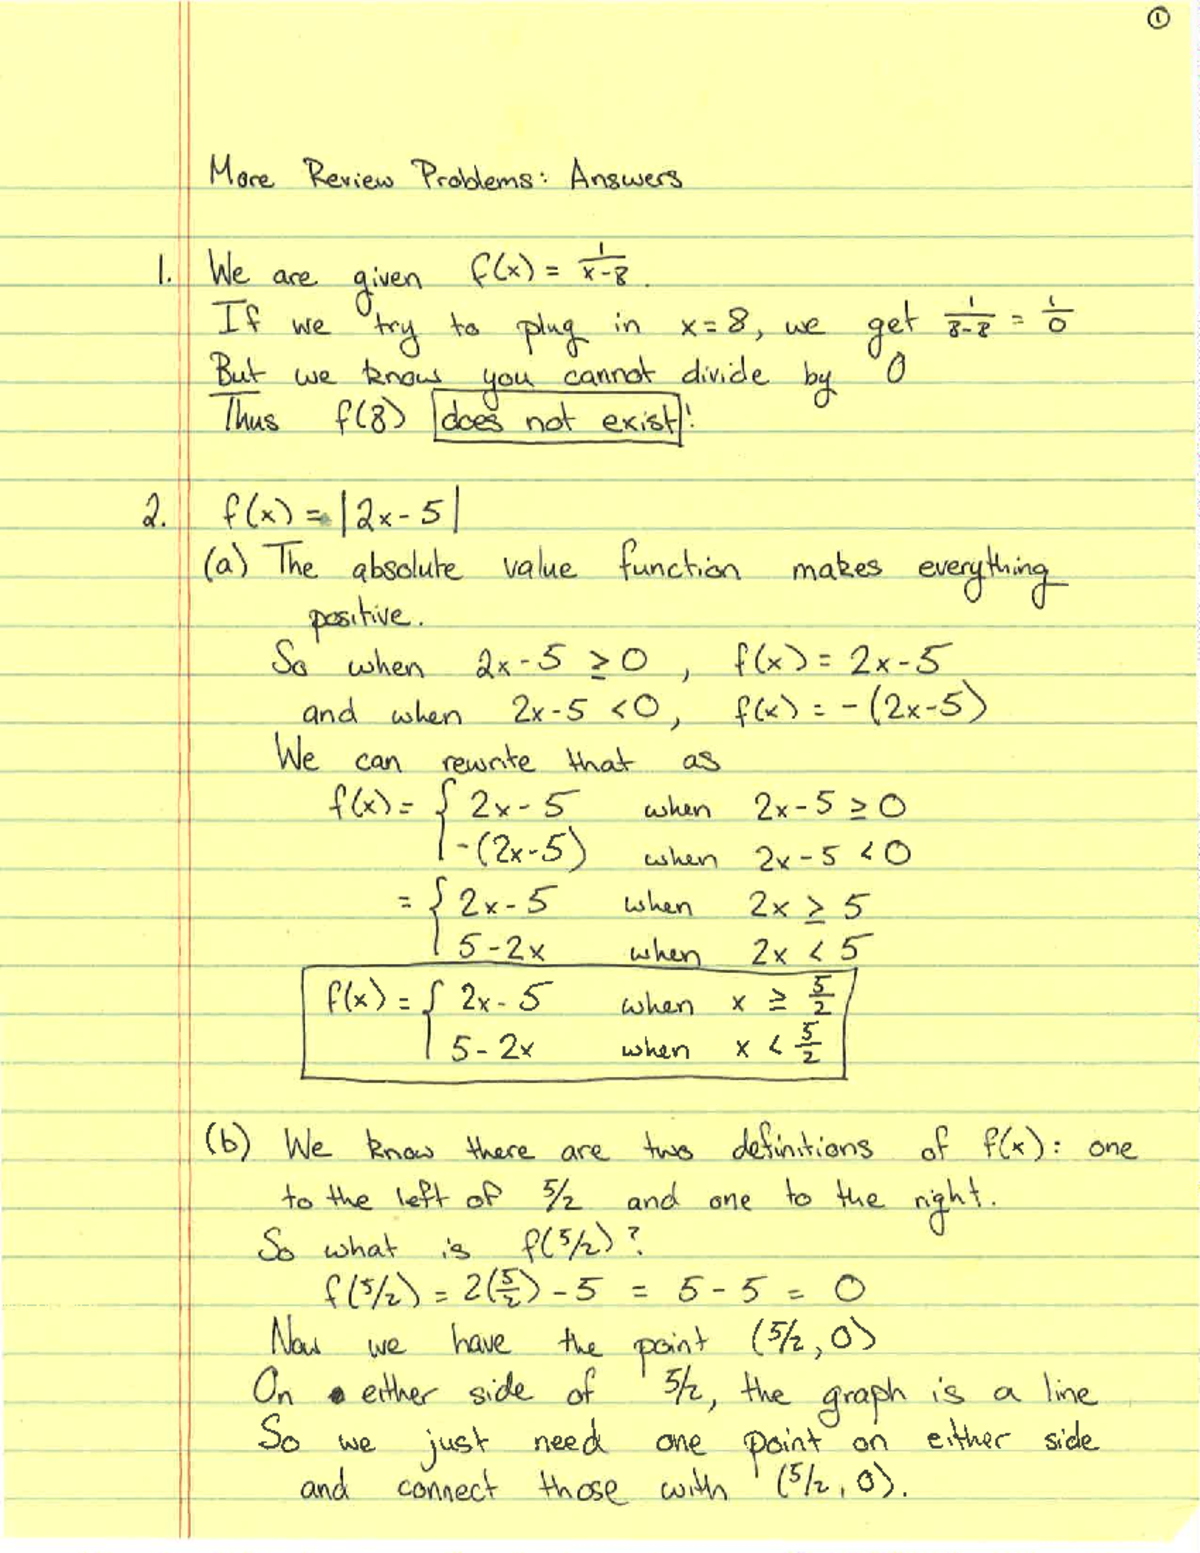 ①
More Review Problems: Answers
1. We are given f(x) = 1/(x-8).
If we try to plug in x=8, we get 1/(8-8) = 1/0
But we know you cannot divide by 0
Thus f(8) does not exist!
2. f(x) = |2x-5|
(a) The absolute value function makes everything
positive.
So when 2x-5 ≥ 0, f(x) = 2x-5
and when 2x-5 < 0, f(x) = -(2x-5)
We can rewrite that as
f(x) = { 2x-5 when 2x-5 ≥ 0
-(2x-5) when 2x-5 < 0
= { 2x-5 when 2x ≥ 5
5-2x when 2x < 5
f(x) = { 2x-5 when x ≥ 5/2
5-2x when x < 5/2
(b) We know there are two definitions of f(x): one
to the left of 5/2 and one to the right.
So what is f(5/2)?
f(5/2) = 2(5/2) - 5 = 5 - 5 = 0
Now we have the point (5/2, 0)
On either side of 5/2, the graph is a line
So we just need one point on either side
and connect those with (5/2, 0).